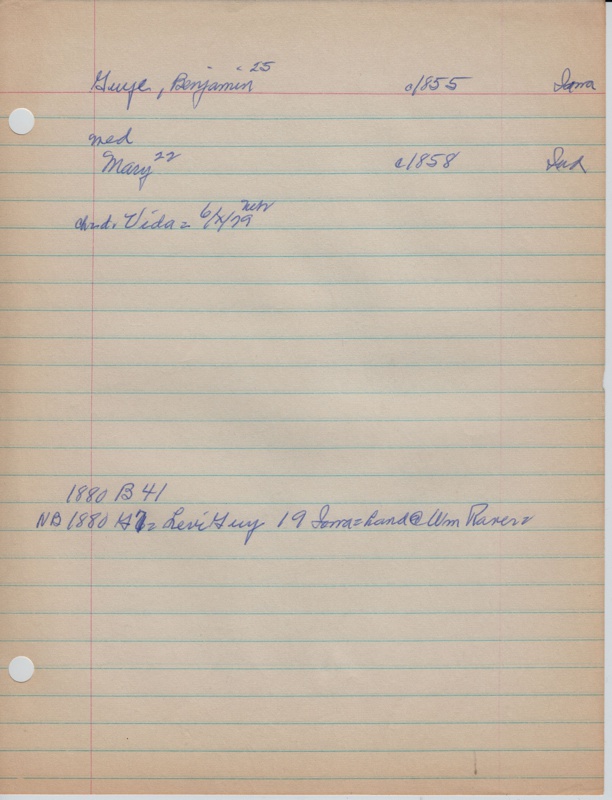 Guye, Benjamin 25 c1855 Iowa
med
Mary 22 c1858 Ind
chrd. Vida = 6/x/79 Neb
1880 B 41
NB 1880 = Levi Guy 19 Iowa = hand @ Wm